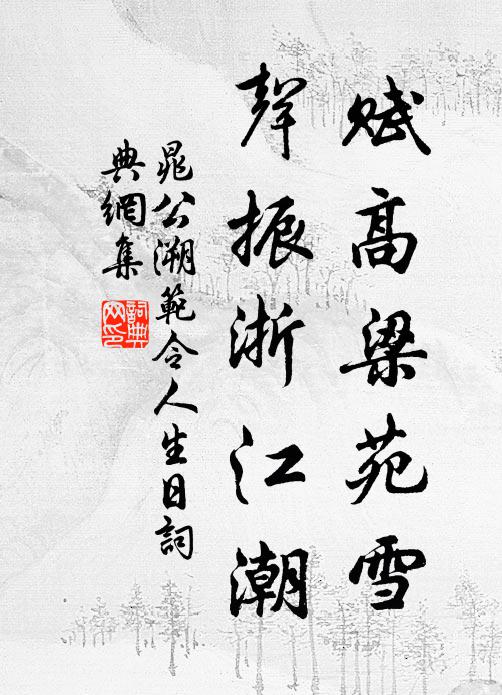 賦高梁苑雪
聲振浙江潮
晁公溯範令人生日詞
典網集
詞典網印